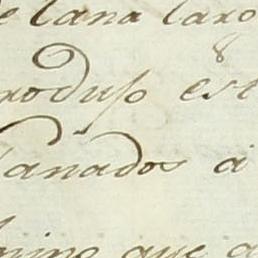 e Lana Caro
rodujo est
anados á
mino que a